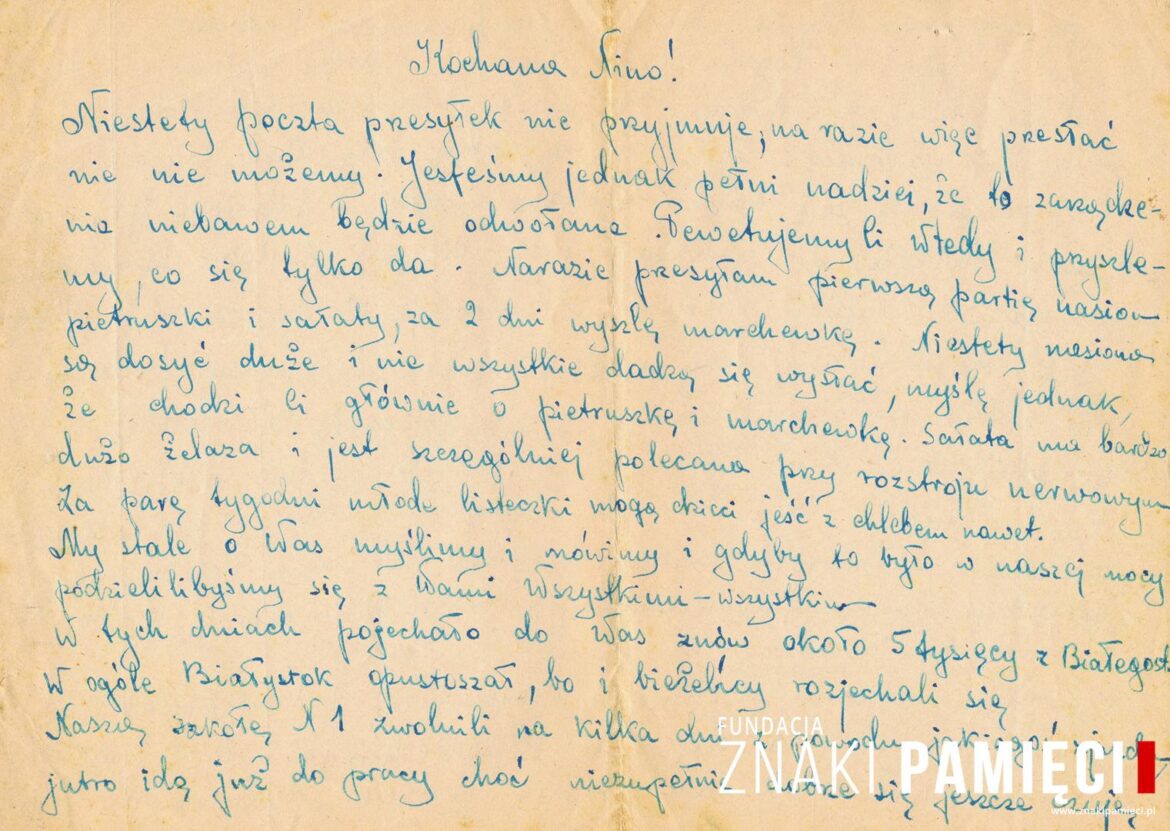 Kochana Nino!
Niestety poczta przesyłek nie przyjmuje, na razie więc przesłać
nic nie możemy. Jesteśmy jednak pełni nadziei, że to zarządze-
nie niebawem będzie odwołane. Powetujemy Ci wtedy i przyszle-
my, co się tylko da. Narazie przesyłam pierwszą partię nasion
pietruszki i sałaty, za 2 dni wyszlę marchewkę. Niestety nasiona
są dosyć duże i nie wszystkie dadzą się wysłać, myślę jednak,
że chodzi Ci głównie o pietruszkę i marchewkę. Sałata ma bardzo
dużo żelaza i jest szczególniej polecana przy rozstroju nerwowym
Za parę tygodni młode listeczki mogą dzieci jeść z chlebem nawet.
My stale o Was myślimy i mówimy i gdyby to było w naszej mocy
podzielilibyśmy się z Wami Wszystkimi - wszystkim
W tych dniach pojechało do Was znów około 5 tysięcy z Białegost.
W ogóle Białystok opustoszał, bo i bieżeńcy rozjechali się
Naszą szkołę N 1 zwolnili na kilka dni z powodu jakiegoś
jutro idę już do pracy choć niezupełnie się jeszcze czuję
FUNDACJA
ZNAKI PAMIĘCI
www.znakipamieci.pl